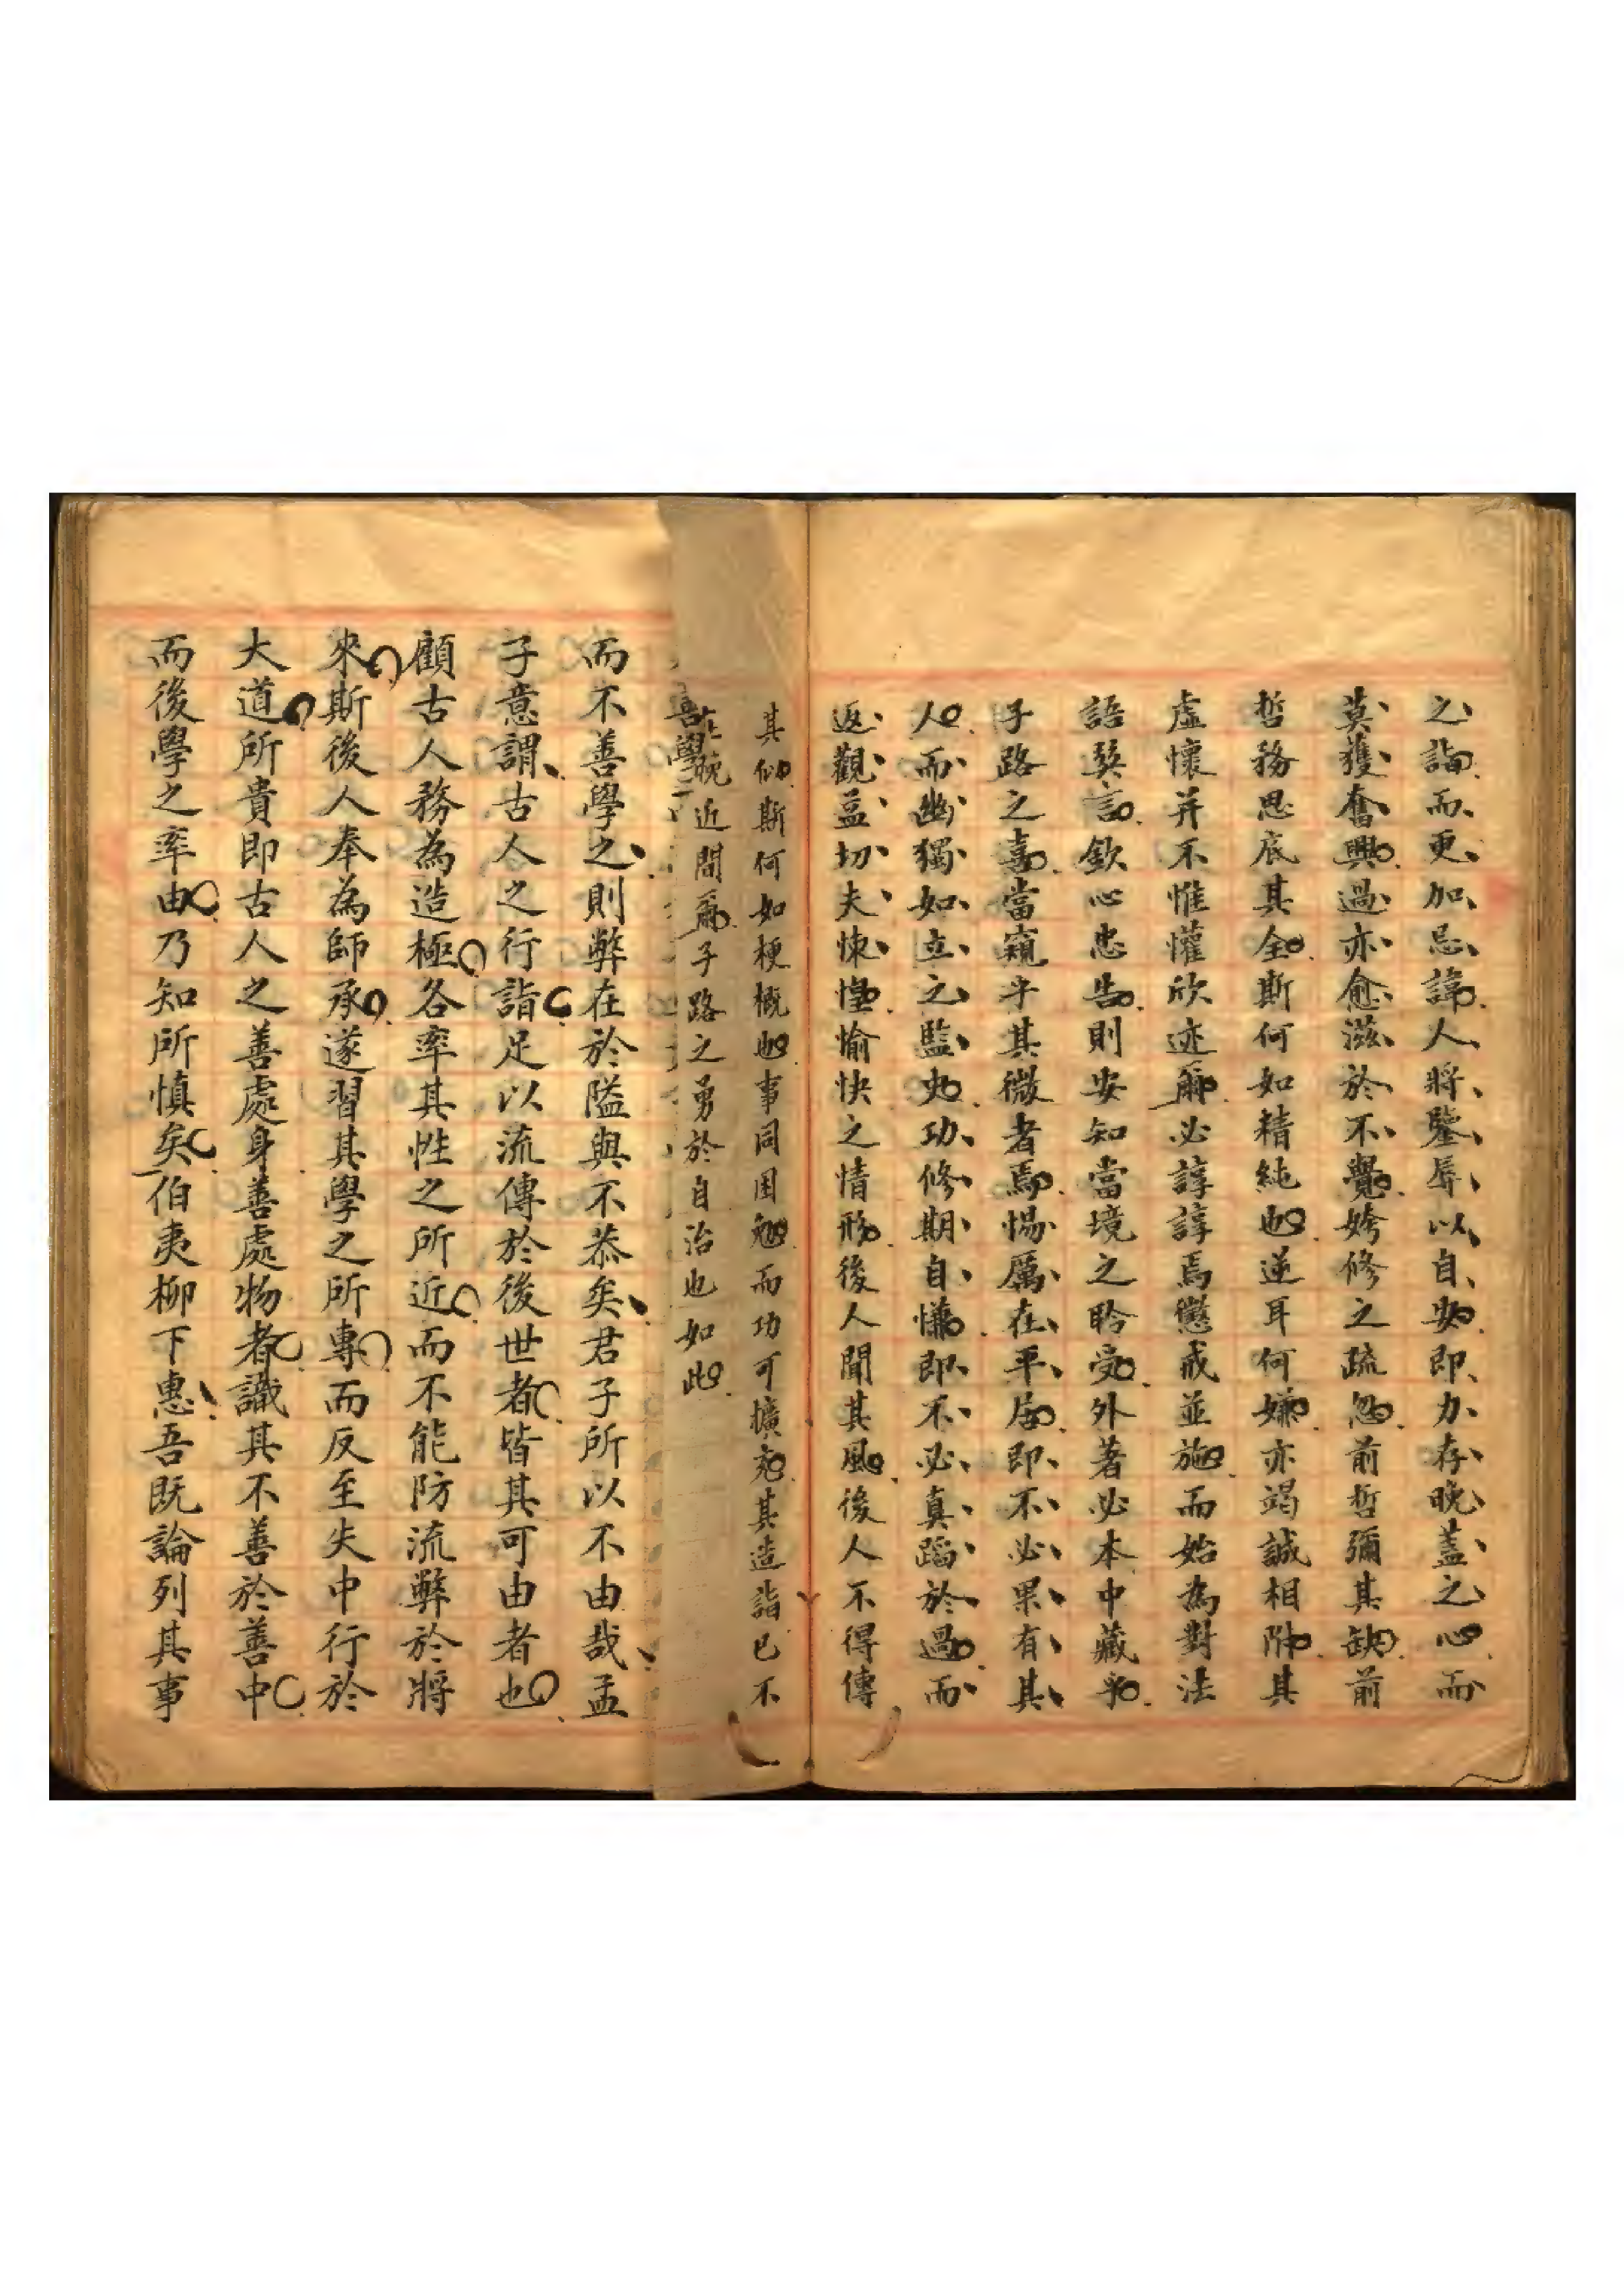 之詣而更加忌諱人將鑒辱以自安即力存晚蓋之心而
莫獲奮興過亦愈滋於不覺姱修之疏忽前哲彌其缺前
哲務思底其全斯何如精純也逆耳何嫌亦竭誠相附其
虛懷并不惟懽欣迹爾必諄諄焉懲戒並施而始為對法
語巽言欽心忠告則安知當境之聆受外著必本中藏乎
子路之喜當窺乎其微者焉惕厲在平居即不必果有其
人而幽獨如立之監史功修期自慊即不必真蹈於過而
返觀益切夫悚惶愉快之情形後人聞其風後人不得傳
其似斯何如梗概也事同困勉而功可擴充其造詣已不
在晚近間爾子路之勇於自治也如此
善學
而不善學之則弊在於隘與不恭矣君子所以不由哉孟
子意謂古人之行詣足以流傳於後世者皆其可由者也
顧古人務為造極各率其性之所近而不能防流弊於將
來斯後人奉為師承遂習其學之所專而反至失中行於
大道所貴即古人之善處身善處物者識其不善於善中
而後學之率由乃知所慎矣伯夷柳下惠吾既論列其事